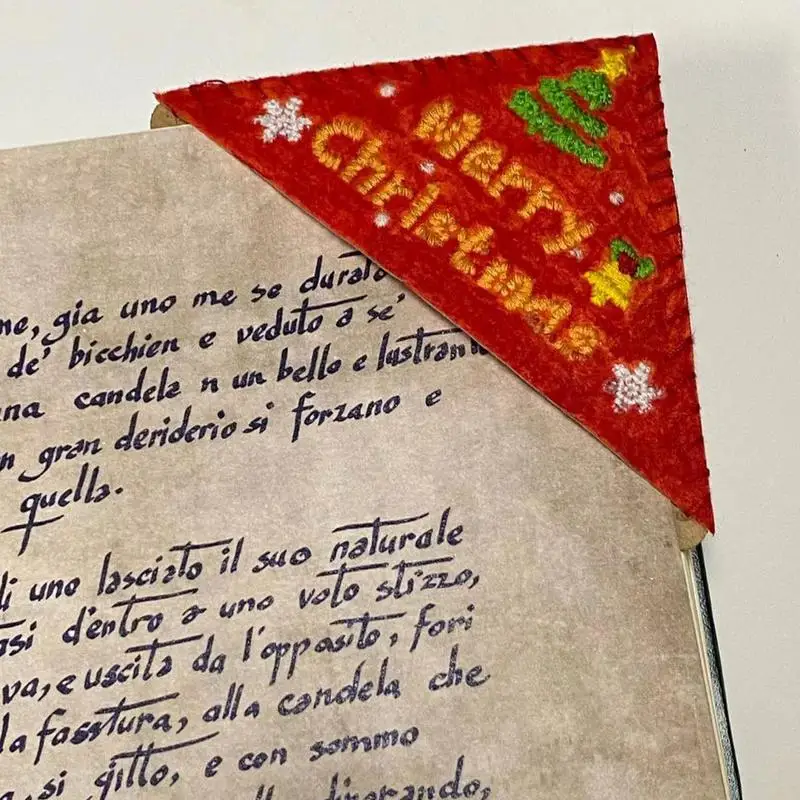 Merry
Christmas
ne, gia uno me se durato
de' bicchien e veduto a se'
na candela n un bello e lustrante
n gran deriderio si forzano e
quella.
li uno lasciato il suo naturale
asi d'entro a uno voto stizzo,
va, e uscita da l'opposito, fori
la fasstura, alla candela che
si gitto, e con sommo
divorando,